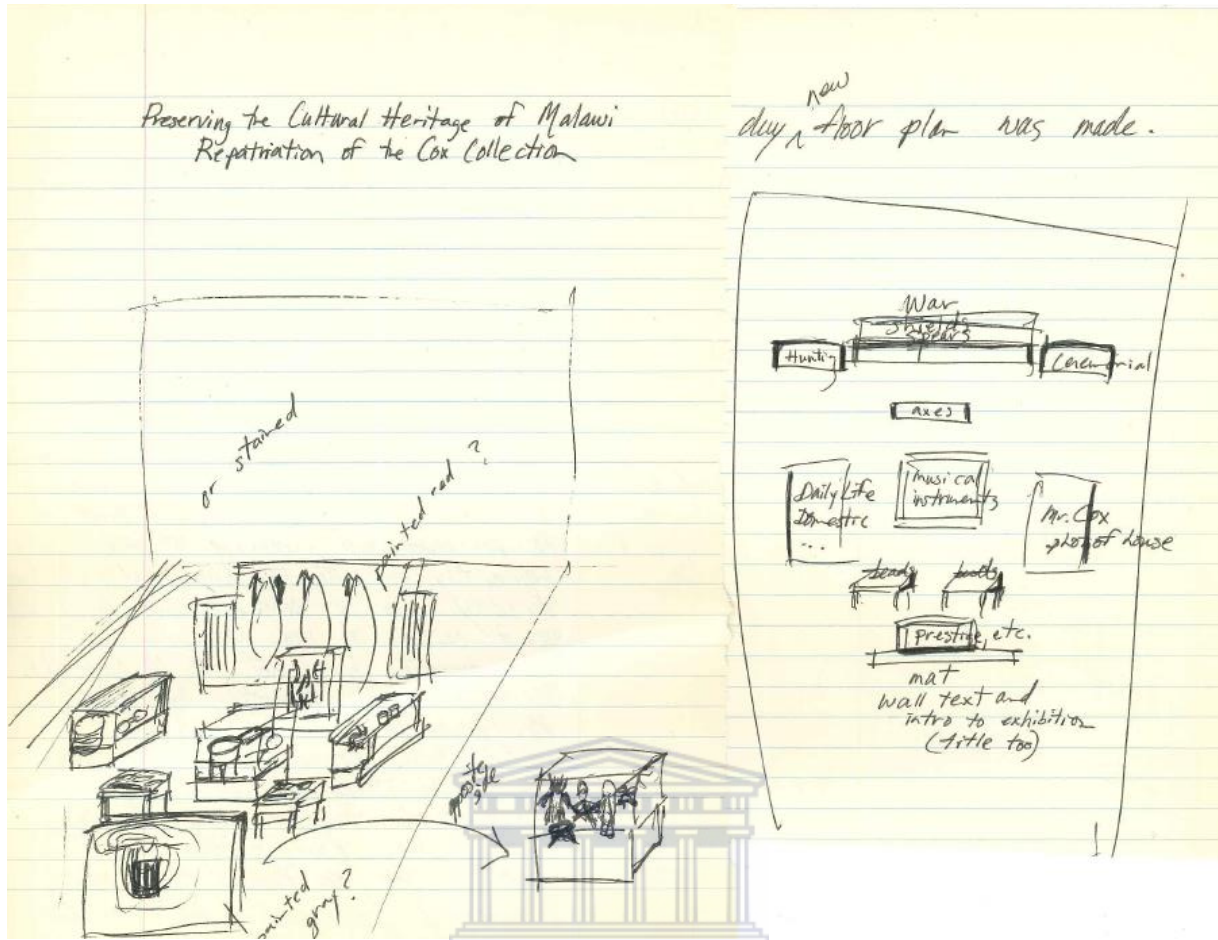 Preserving the Cultural Heritage of Malawi
Repatriation of the Cox Collection
or stained
painted red?
opposite
side
painted
gray?
new
day ^ floor plan was made.
War
shields
spears
Hunting
Ceremonial
axes
Daily Life
Domestic
...
musical
instruments
Mr. Cox
photo of house
beads
prestige, etc.
mat
wall text and
intro to exhibition
(title too)